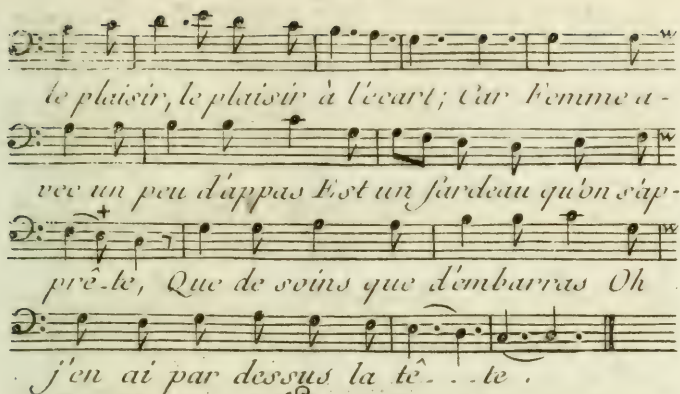 le plaisir, le plaisir à l'ecart; Car Femme a-
vec un peu d'appas Est un fardeau qu'on s'ap-
prê-te, Que de soins que d'embarras Oh
j'en ai par dessus la tê...te.